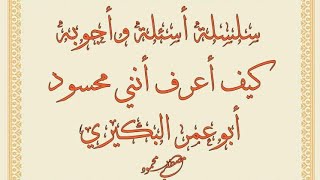 سلسلة أسئلة وأجوبة
كيف أعرف أنني محسود
أبو عمر البكيري